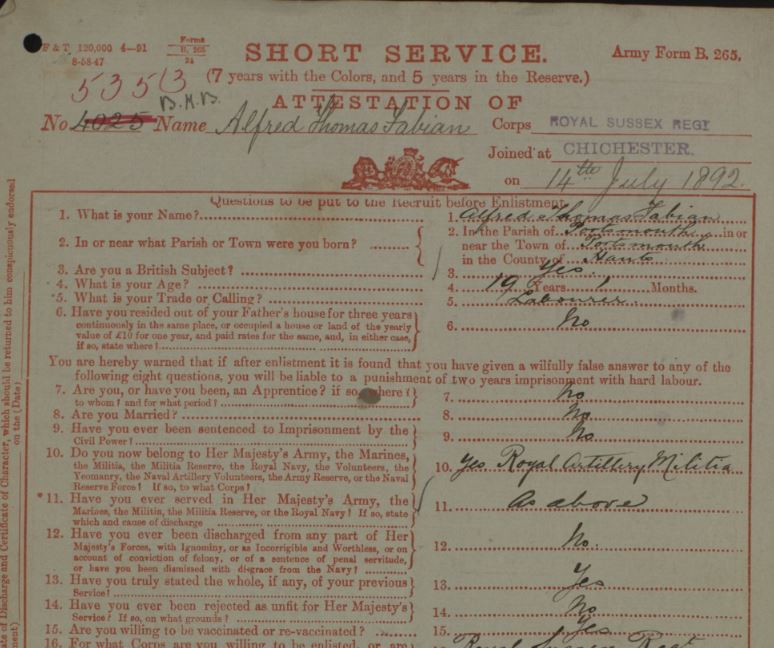 F & T 120,000 4—91
8-58-47
Forms
B. 265
24
SHORT SERVICE.
Army Form B. 265.
5353
(7 years with the Colors, and 5 years in the Reserve.)
ATTESTATION OF
No 4025 Name Alfred Thomas Fabian Corps ROYAL SUSSEX REGT
Joined at CHICHESTER.
on 14th July 1892.
Questions to be put to the Recruit before Enlistment.
1. What is your Name? 1. Alfred Thomas Fabian
2. In or near what Parish or Town were you born? 2. In the Parish of Portsmouth in or
near the Town of Portsmouth
in the County of Hants
3. Are you a British Subject? 3. Yes.
4. What is your Age? 4. 19 Years 1 Months.
5. What is your Trade or Calling? 5. Labourer.
6. Have you resided out of your Father's house for three years 6. No
continuously in the same place, or occupied a house or land of the yearly
value of £10 for one year, and paid rates for the same, and, in either case,
if so, state where?
You are hereby warned that if after enlistment it is found that you have given a wilfully false answer to any of the
following eight questions, you will be liable to a punishment of two years imprisonment with hard labour.
7. Are you, or have you been, an Apprentice? if so where? 7. No
to whom? and for what period?
8. Are you Married? 8. No
9. Have you ever been sentenced to Imprisonment by the 9. No
Civil Power?
10. Do you now belong to Her Majesty's Army, the Marines, 10. Yes Royal Artillery Militia
the Militia, the Militia Reserve, the Royal Navy, the Volunteers, the
Yeomanry, the Naval Artillery Volunteers, the Army Reserve, or the Naval
Reserve Force? If so, to what Corps?
*11. Have you ever served in Her Majesty's Army, the 11. As above
Marines, the Militia, the Militia Reserve, or the Royal Navy? If so, state
which and cause of discharge
12. Have you ever been discharged from any part of Her 12. No.
Majesty's Forces, with Ignominy, or as Incorrigible and Worthless, or on
account of conviction of felony, or of a sentence of penal servitude,
or have you been dismissed with disgrace from the Navy?
13. Have you truly stated the whole, if any, of your previous 13. Yes
Service?
14. Have you ever been rejected as unfit for Her Majesty's 14. No
Service? If so, on what grounds?
15. Are you willing to be vaccinated or re-vaccinated? 15. Yes
16. For what Corps are you willing to be enlisted, or are Royal Sussex Regt
ate of Discharge and Certificate of Character, which should be returned to him conspicuously endorsed
on the (Date)